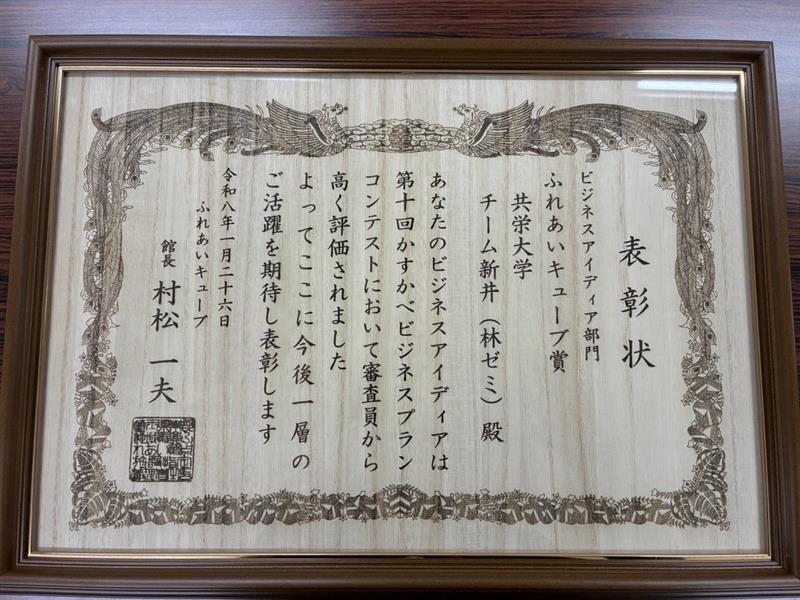 表彰状
ビジネスアイディア部門
ふれあいキューブ賞
共栄大学
チーム新井（林ゼミ）殿
あなたのビジネスアイディアは
第十回かすかべビジネスプラン
コンテストにおいて審査員から
高く評価されました
よってここに今後一層の
ご活躍を期待し表彰します
令和八年一月二十六日
ふれあいキューブ
館長 村松 一夫